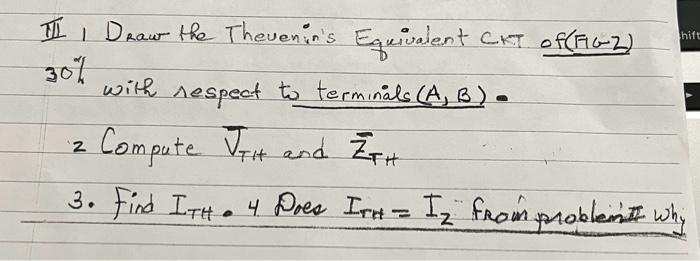 III 1 Draw the Thevenin's Equivalent CKT of (FIG-2)
30% with respect to terminals (A, B).
2 Compute V̅TH and Z̅TH
3. Find ITH. 4 Does ITH = I2 from problem II why
hift